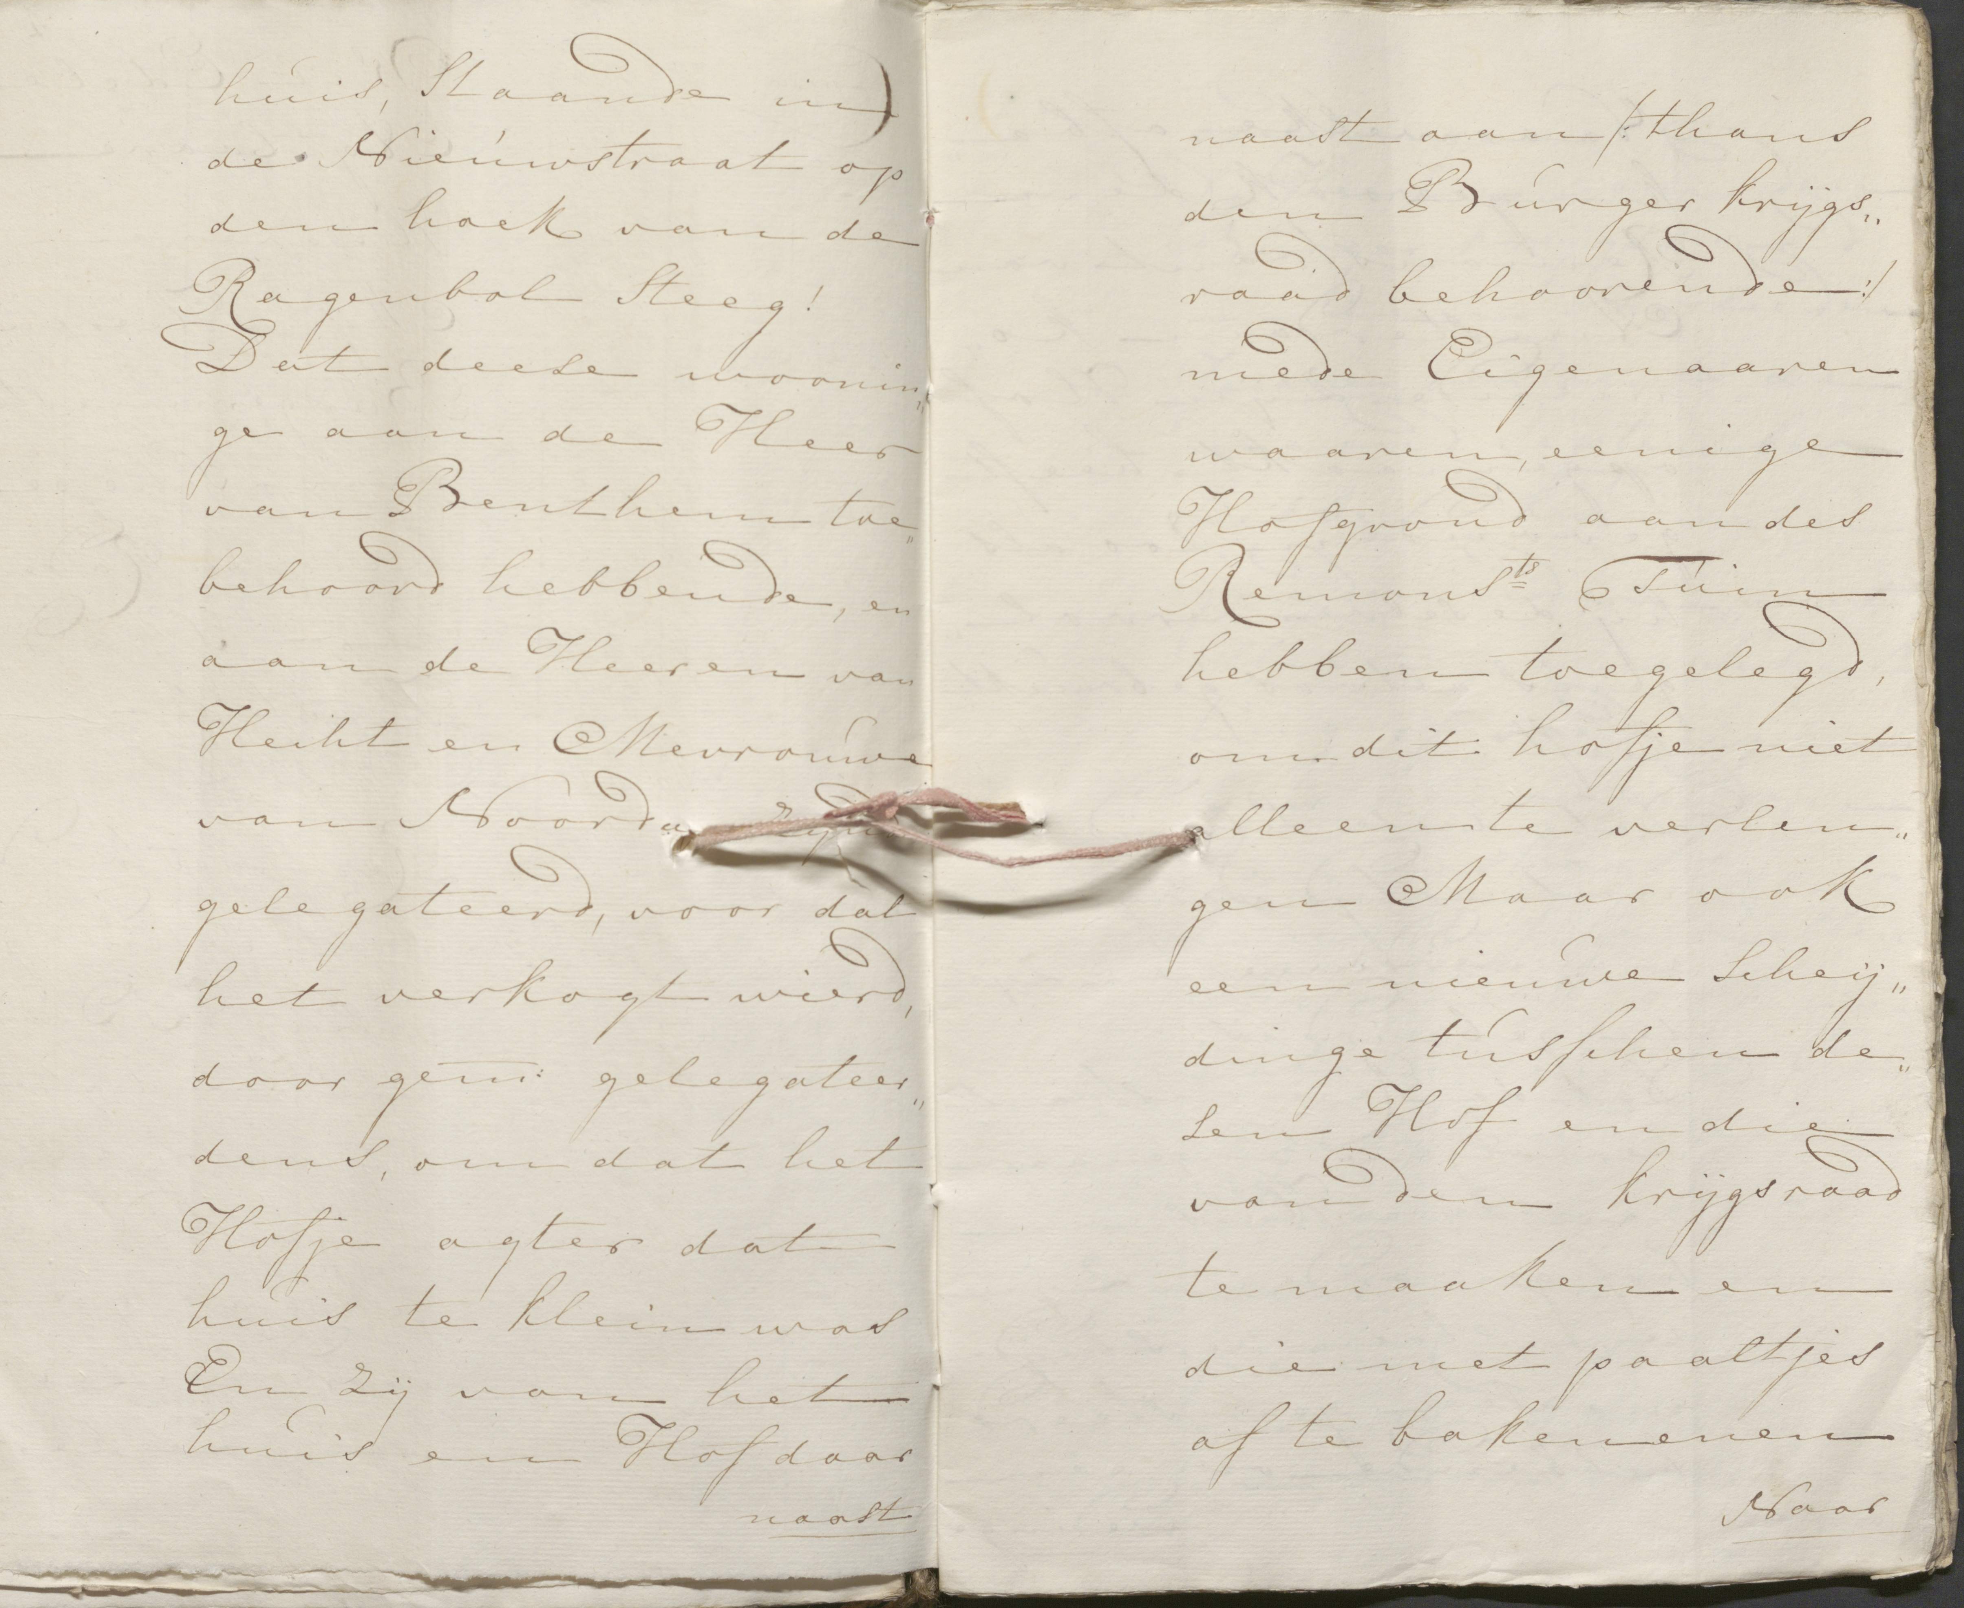 huis, Staande in
de Nieuwstraat op
den hoek van de
Ragenbol Steeg!
Dat deese woonin„
ge aan de Heer
van Benthem toe„
behoord hebbende, en
aan de Heeren van
Hecht en Mevrouwe
van zijn
gelegateerd, voor dat
het verkogt wierd,
door gem: gelegateer„
dens, om dat het
Hofje agter dat
huis te klein was
En zij van het
huis en Hof daar
naast
naast aan /: thans
den Burger krijgs„
raad behoorende :/
mede Eigenaaren
waaren, eenige
Hofgrond aan des
Remonsts Tuin
hebben toegelegd,
om dit hofje niet
alleen te verlen„
gen Maar ook
een nieuwe Scheij„
dinge tusschen de„
sen Hof en die
van den krijgsraad
te maaken en
die met paaltjes
af te bakenenen
Naar